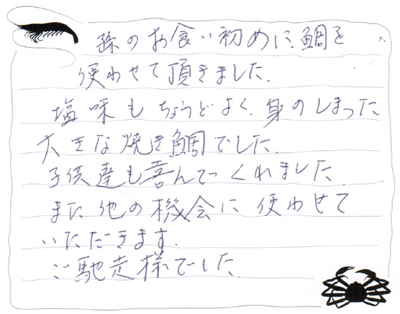 孫のお食い初めに、鯛を
使わせて頂きました。
塩味もちょうどよく、身のしまった
大きな焼き鯛でした。
子供達も喜んでくれました。
また他の機会に使わせて
いただきます。
ご馳走様でした。